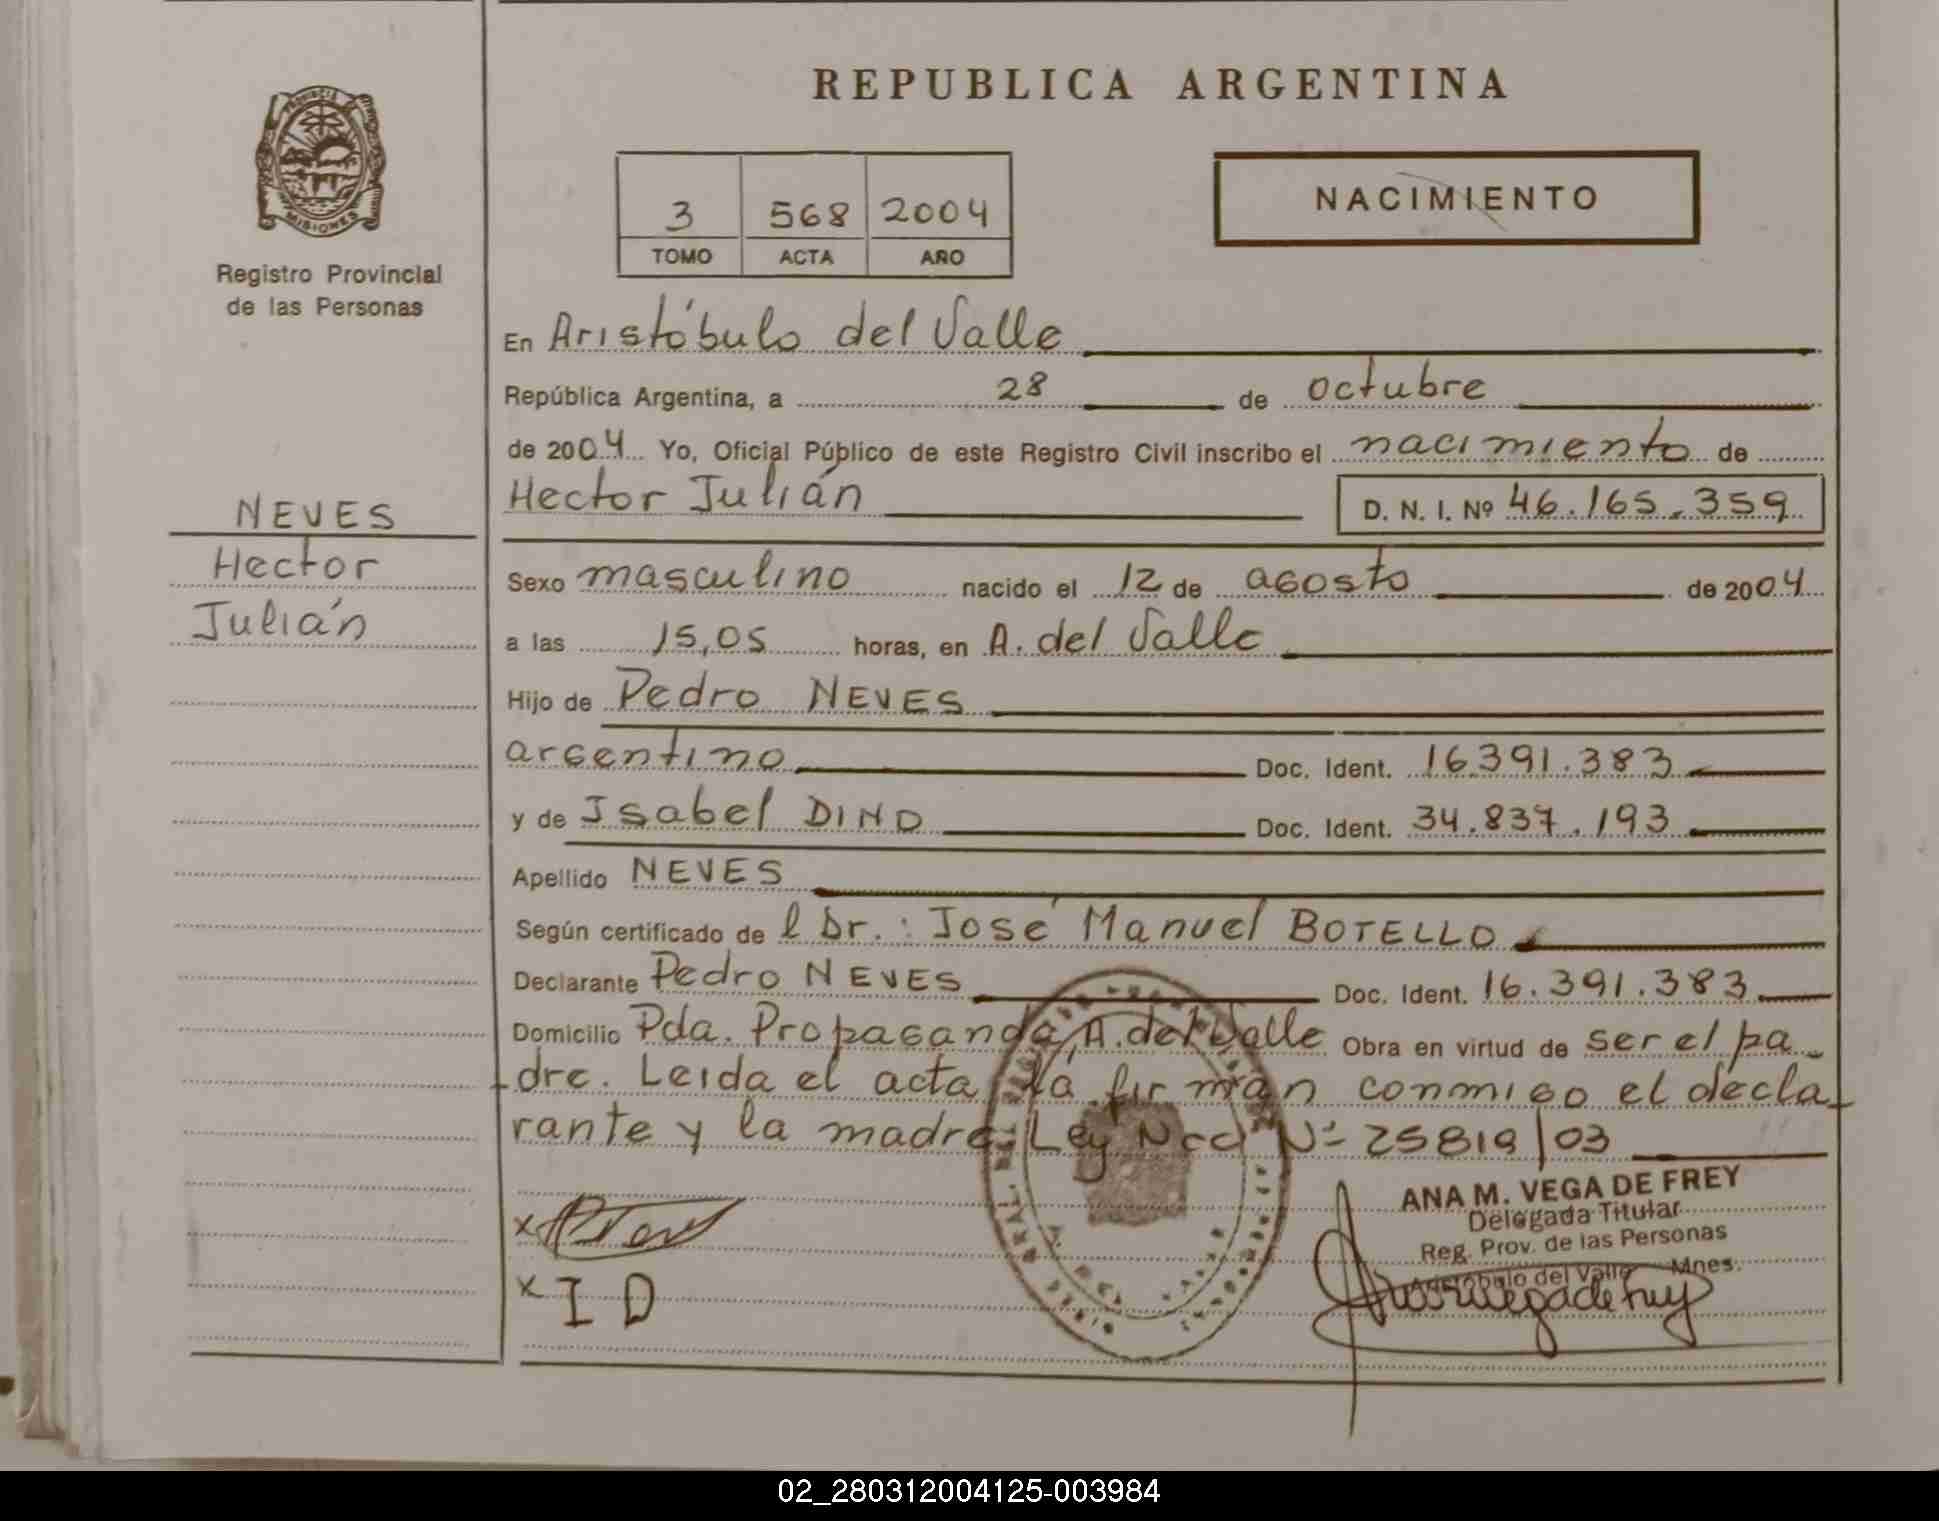 REPUBLICA ARGENTINA
MISIONES
Registro Provincial
de las Personas
3 568 2004
TOMO ACTA AÑO
NACIMIENTO
En Aristóbulo del Valle
República Argentina, a 28 de octubre
de 2004 Yo, Oficial Público de este Registro Civil inscribo el nacimiento de
Hector Julián D. N. I. Nº 46.165.359
NEVES
Hector
Julián
Sexo masculino nacido el 12 de agosto de 2004
a las 15,05 horas, en A. del Valle
Hijo de Pedro NEVES
argentino Doc. Ident. 16.391.383
y de Isabel DINO Doc. Ident. 34.837.193
Apellido NEVES
Según certificado de l Dr.: José Manuel BOTELLO
Declarante Pedro NEVES Doc. Ident. 16.391.383
Domicilio Pda. Propaganda, A. del Valle Obra en virtud de ser el pa
dre. Leida el acta la firman conmigo el decla
rante y la madre. Ley Nº 25819/03
ANA M. VEGA DE FREY
Delegada Titular
Reg. Prov. de las Personas
Aristóbulo del Valle Mnes.
x
x I D
02_280312004125-003984